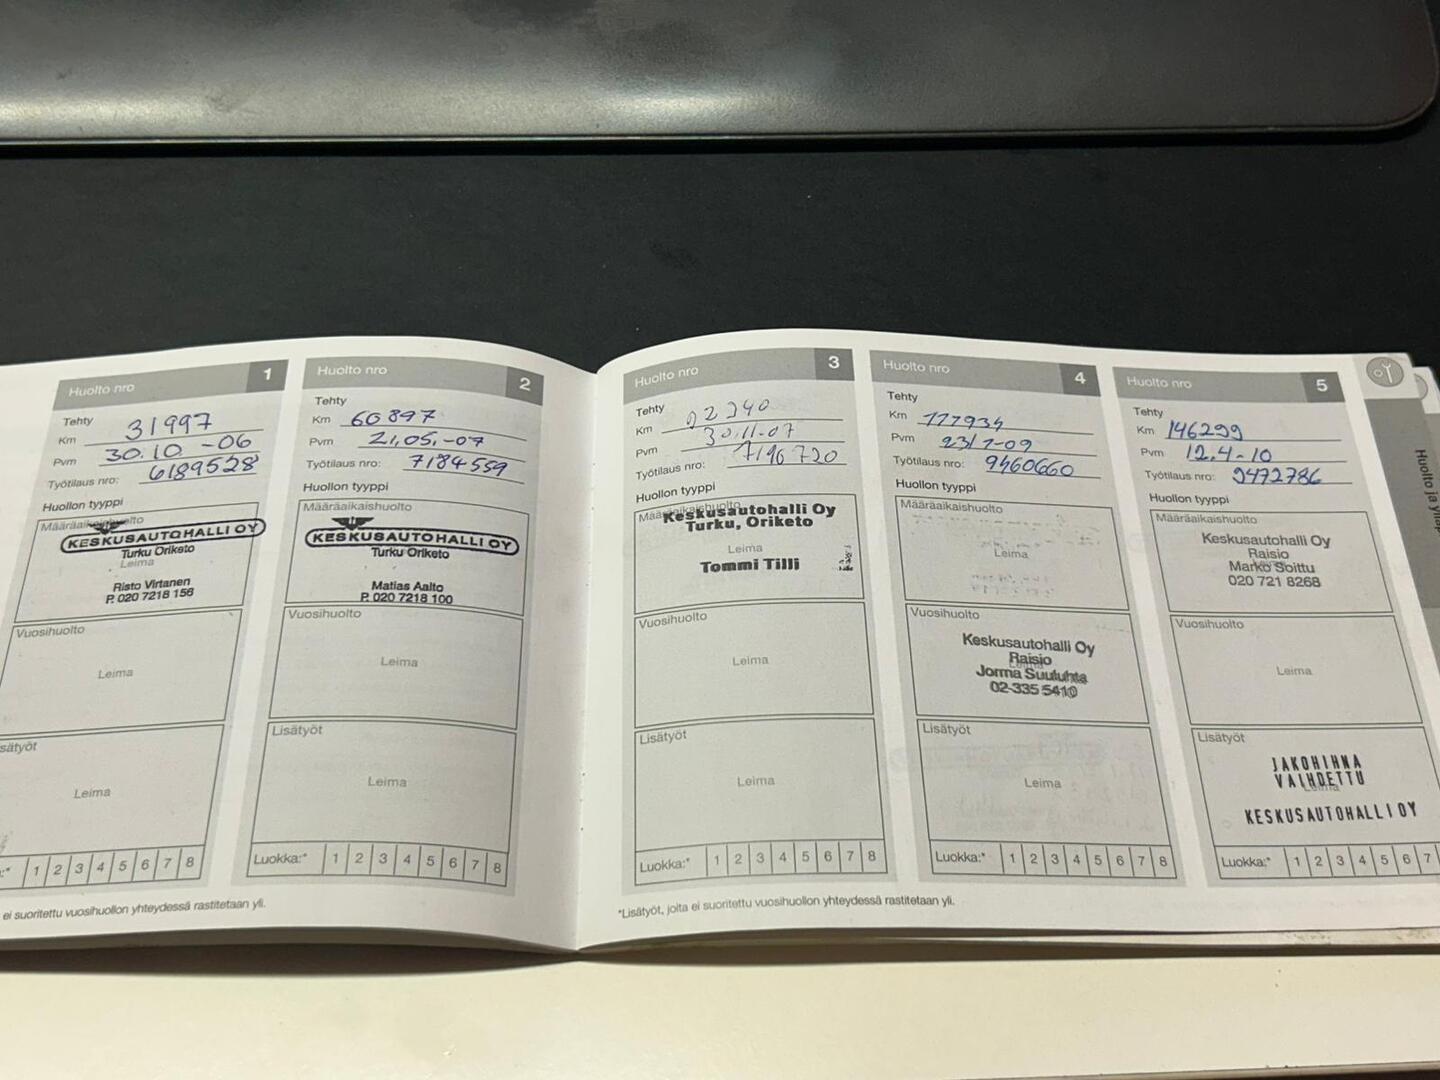 Huolto nro 1
Tehty
Km 31997
Pvm 30.10.-06
Työtilaus nro: 6189528
Huollon tyyppi
Määräaikaishuolto
KESKUSAUTOHALLI OY
Turku Oriketo
Leima
Risto Virtanen
P. 020 7218 156
Vuosihuolto
Leima
Leima
1 2 3 4 5 6 7 8
ei suoritettu vuosihuollon yhteydessä rastitetaan yli.
Huolto nro 2
Tehty
Km 60897
Pvm 21,05,-07
Työtilaus nro: 7184559
Huollon tyyppi
Määräaikaishuolto
KESKUSAUTOHALLI OY
Turku Oriketo
Matias Aalto
P. 020 7218 100
Vuosihuolto
Leima
Lisätyöt
Leima
Luokka:* 1 2 3 4 5 6 7 8
Huolto nro 3
Tehty
Km
Pvm 30.11-07
Työtilaus nro: 7196720
Huollon tyyppi
Määräaikaishuolto
Keskusautohalli Oy
Turku, Oriketo
Leima
Tommi Tilli
Vuosihuolto
Leima
Lisätyöt
Leima
Luokka:* 1 2 3 4 5 6 7 8
*Lisätyöt, joita ei suoritettu vuosihuollon yhteydessä rastitetaan yli.
Huolto nro 4
Tehty
Km 117934
Pvm
Työtilaus nro: 9460660
Huollon tyyppi
Määräaikaishuolto
Leima
Vuosihuolto
Keskusautohalli Oy
Raisio
Jorma Suuluhta
02-335 5410
Lisätyöt
Leima
Luokka:* 1 2 3 4 5 6 7 8
Huolto nro 5
Tehty
Km 146299
Pvm 12.4-10
Työtilaus nro: 9472786
Huollon tyyppi
Määräaikaishuolto
Keskusautohalli Oy
Raisio
Marko Soittu
020 721 8268
Vuosihuolto
Leima
Lisätyöt
JAKOHIHNA
VAIHDETTU
Leima
KESKUSAUTOHALLI OY
Luokka:* 1 2 3 4 5 6 7